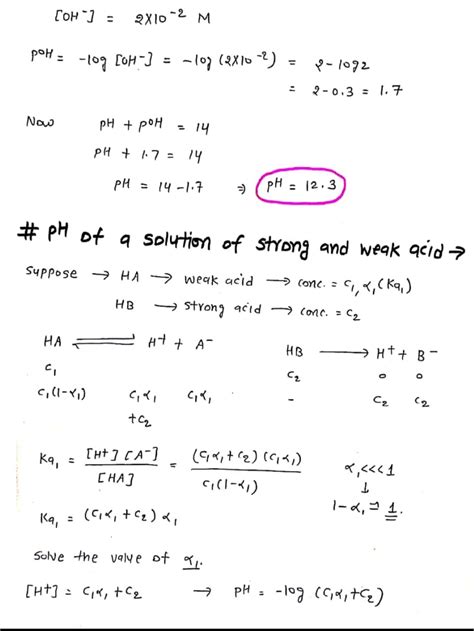 [OH⁻] = 2×10⁻² M
pOH = -log [OH⁻] = -log (2×10⁻²) = 2-log2
= 2-0.3 = 1.7
Now pH + pOH = 14
pH + 1.7 = 14
pH = 14-1.7 ⇒ pH = 12.3
# pH of a solution of strong and weak acid →
Suppose → HA → weak acid → conc. = C₁, α₁ (Ka₁)
HB → strong acid → conc. = C₂
HA ⇌ H⁺ + A⁻ HB → H⁺ + B⁻
C₁ C₂ 0 0
C₁(1-α₁) C₁α₁ C₁α₁ - C₂ C₂
+C₂
Ka₁ = [H⁺] [A⁻] / [HA] = (C₁α₁ + C₂) (C₁α₁) / C₁(1-α₁) α₁ <<< 1
↓
1-α₁ ⇒ 1.
Ka₁ = (C₁α₁ + C₂) α₁
Solve the value of α₁.
[H⁺] = C₁α₁ + C₂ → pH = -log (C₁α₁+C₂)